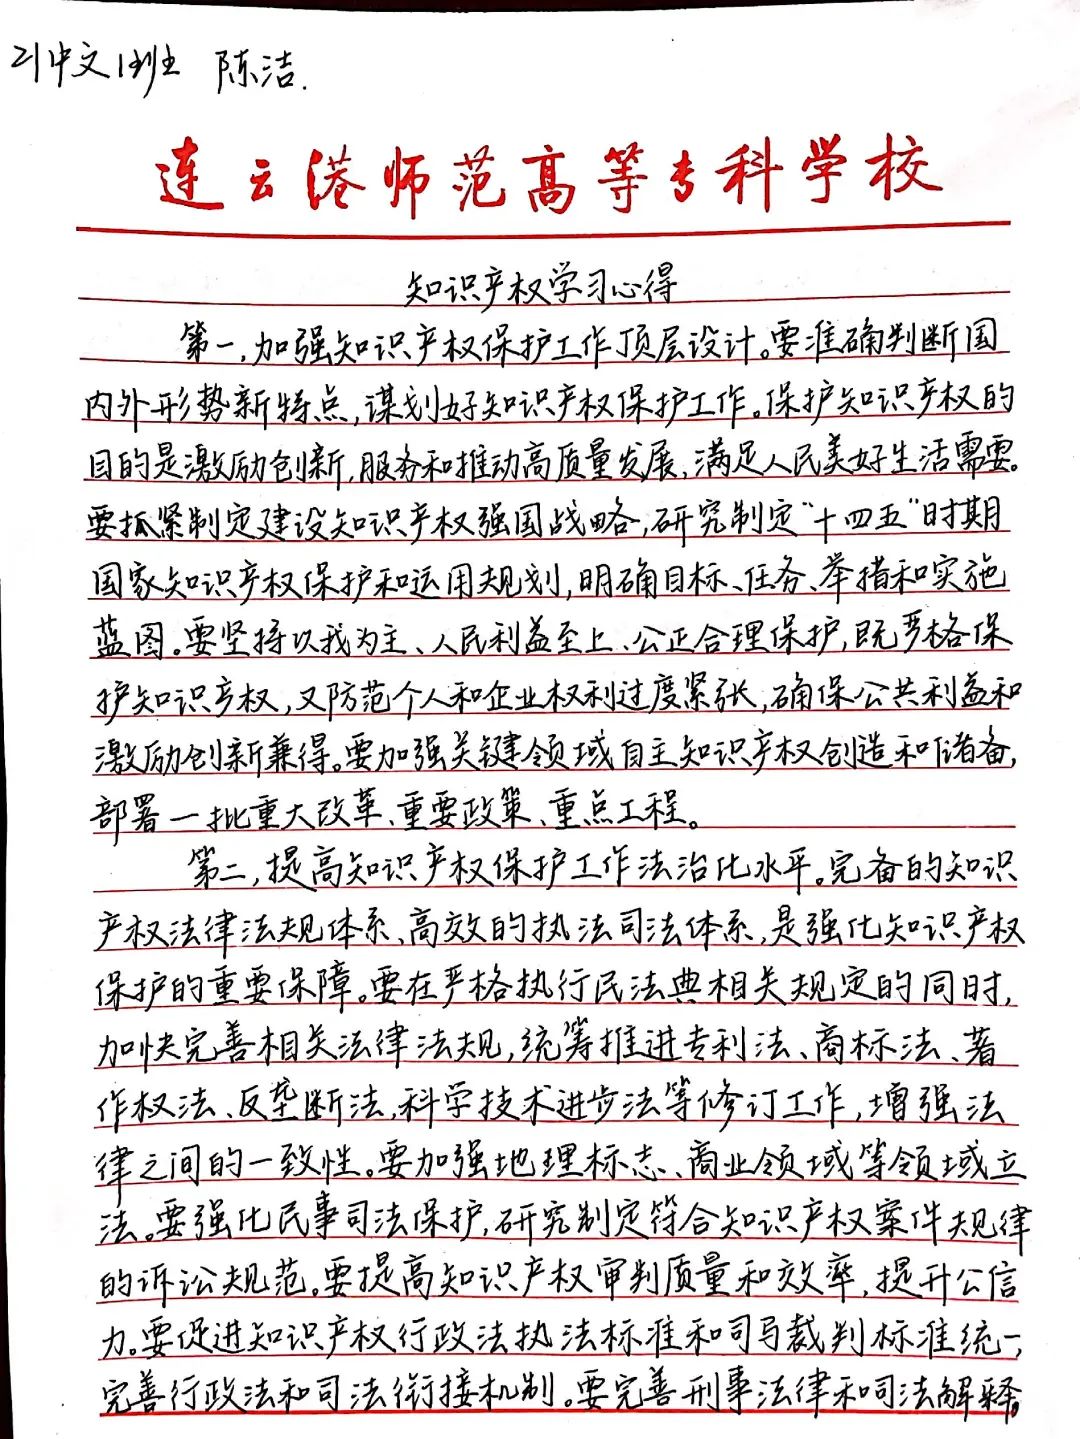 21中文1班 陈洁.
连云港师范高等专科学校
知识产权学习心得
第一,加强知识产权保护工作顶层设计。要准确判断国
内外形势新特点,谋划好知识产权保护工作。保护知识产权的
目的是激励创新,服务和推动高质量发展,满足人民美好生活需要。
要抓紧制定建设知识产权强国战略,研究制定“十四五”时期
国家知识产权保护和运用规划,明确目标、任务、举措和实施
蓝图。要坚持以我为主、人民利益至上、公正合理保护,既严格保
护知识产权,又防范个人和企业权利过度紧张,确保公共利益和
激励创新兼得。要加强关键领域自主知识产权创造和储备,
部署一批重大改革、重要政策、重点工程。
第二,提高知识产权保护工作法治化水平。完备的知识
产权法律法规体系、高效的执法司法体系,是强化知识产权
保护的重要保障。要在严格执行民法典相关规定的同时,
加快完善相关法律法规,统筹推进专利法、商标法、著
作权法、反垄断法,科学技术进步法等修订工作,增强法
律之间的一致性。要加强地理标志、商业领域等领域立
法。要强化民事司法保护,研究制定符合知识产权案件规律
的诉讼规范。要提高知识产权审判质量和效率,提升公信
力。要促进知识产权行政法执法标准和司马裁判标准统一,
完善行政法和司法衔接机制。要完善刑事法律和司法解释。